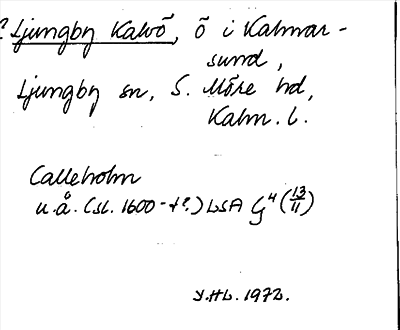 ? Ljungby Kalvö, ö i Kalmar-
sund,
Ljungby sn, S. Möre hd,
Kalm. l.
Calleholm
u.å. (sl. 1600-t?) LSA G⁴ (13/11)
Y.HL. 1972.